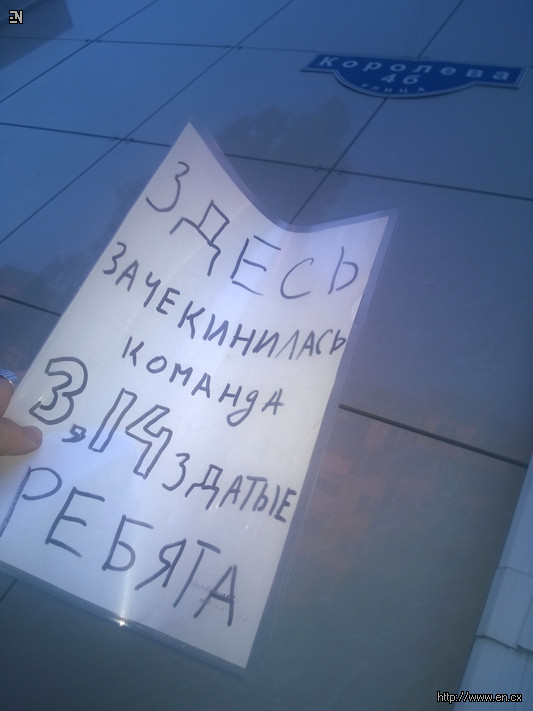 EN
Королева
46
улица
ЗДЕСЬ
ЗАЧЕКИНИЛАСЬ
КОМАНДА
3,14ЗДАТЫЕ
РЕБЯТА
http://www.en.cx